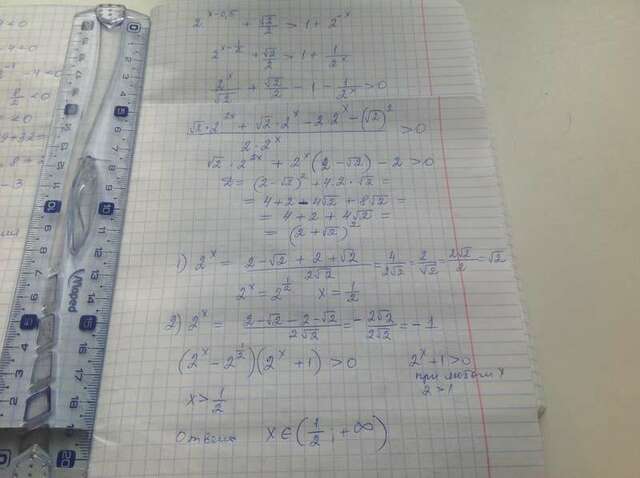 2^{x-0,5} + √2/2 > 1 + 2^{-x}
2^{x-1/2} + √2/2 > 1 + 1/2^x
2^x/√2 + √2/2 - 1 - 1/2^x > 0
(√2·2^{2x} + √2·2^x - 2·2^x - (√2)^2)/(2·2^x) > 0
√2·2^{2x} + 2^x(2-√2) - 2 > 0
D = (2-√2)^2 + 4·2·√2 =
= 4+2-4√2 + 8√2 =
= 4+2+4√2 =
= (2+√2)^2
1) 2^x = (2-√2+2+√2)/(2√2) = 4/(2√2) = 2/√2 = 2√2/2 = √2
2^x = 2^{1/2} x = 1/2
2) 2^x = (2-√2-2-√2)/(2√2) = -2√2/(2√2) = -1
(2^x - 2^{1/2})(2^x + 1) > 0 2^x+1>0
при любом x
2>1
x > 1/2
Ответ: x ∈ (1/2; +∞)
Maped